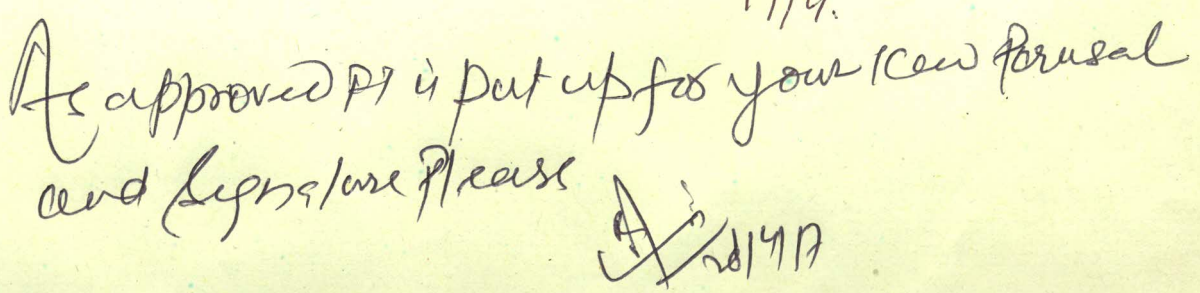 As approved PI is put up for your kew Perusal
and Signature Please
20/4/17